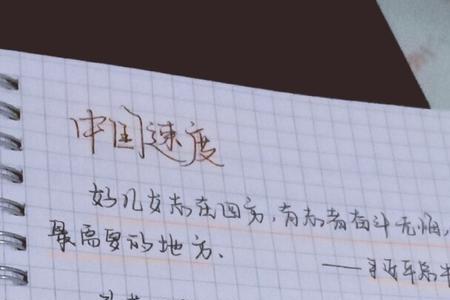 中国速度
好儿女志在四方，有志者奋斗无悔，
最需要的地方.
——习近平总书